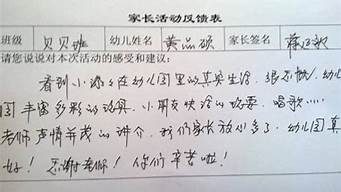 家长活动反馈表
班级 贝贝班 幼儿姓名 黄品硕 家长签名
请您说说对本次活动的感受和建议：
看到小朋友在幼儿园里的真实生活，很不错，幼儿
园丰富多彩的玩具，小朋友快活的玩耍，唱歌……
老师声情并茂的讲介，我们家长放心多了，幼儿园真
好！感谢老师！你们辛苦啦！